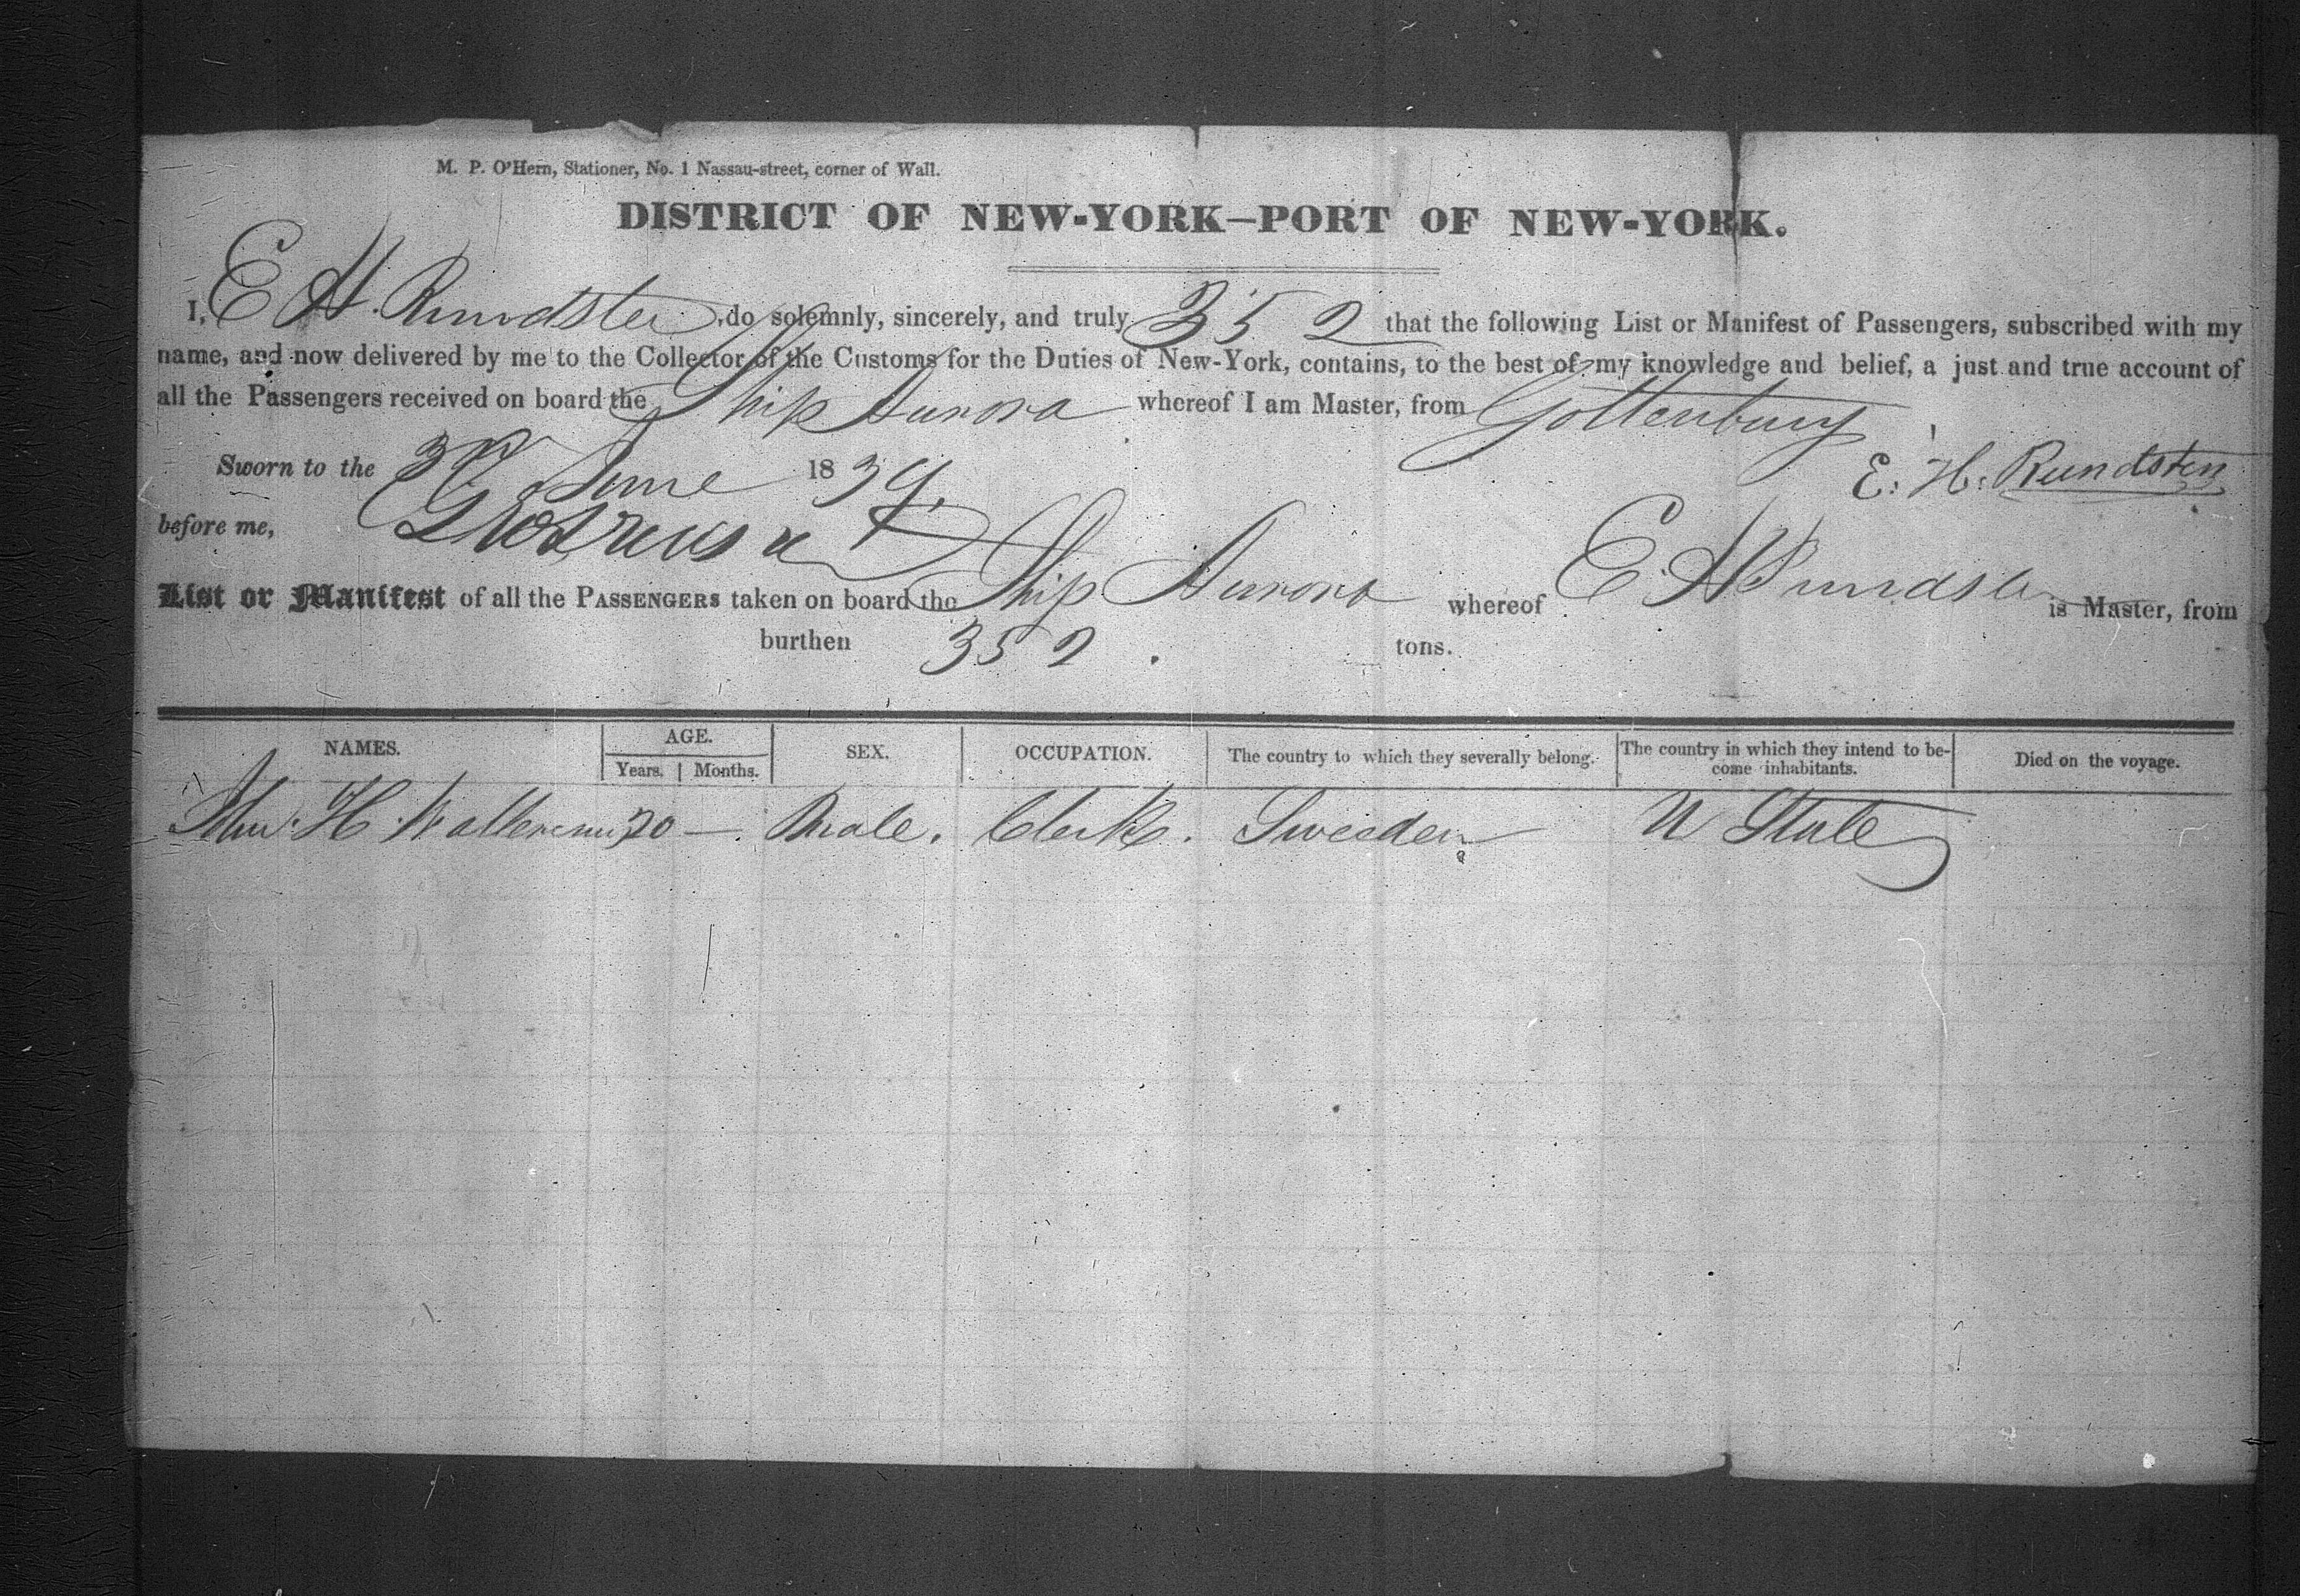 M. P. O'Hern, Stationer, No. 1 Nassau-street, corner of Wall.
DISTRICT OF NEW-YORK—PORT OF NEW-YORK.
I, E H. Rundsten do solemnly, sincerely, and truly 352 that the following List or Manifest of Passengers, subscribed with my
name, and now delivered by me to the Collector of the Customs for the Duties of New-York, contains, to the best of my knowledge and belief, a just and true account of
all the Passengers received on board the Ship Aurora whereof I am Master, from Gottenburg
Sworn to the 3rd June 1839.
E. H. Rundsten
before me,
List or Manifest of all the PASSENGERS taken on board the Ship Aurora whereof E H Rundsten is Master, from
burthen 352. tons.
NAMES. AGE. SEX. OCCUPATION. The country to which they severally belong. The country in which they intend to be- Died on the voyage.
Years. Months. come inhabitants.
H. 20 —. Male. Clerk. Sweeden U State